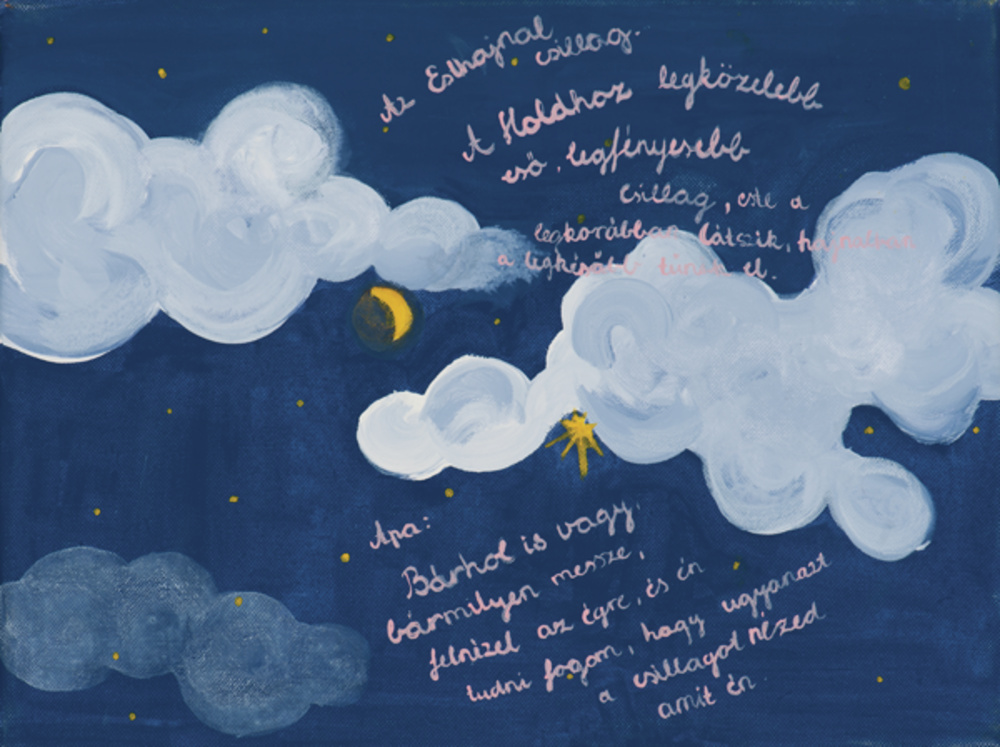 Az Esthajnal
csillag.
A Holdhoz legközelebb
eső, legfényesebb
csillag, este a
legkorábban látszik, hajnalban
a legkésőbb tűnik el.
Apa:
Bárhol is vagy,
bármilyen messze,
felnézel az égre, és én
tudni fogom, hogy ugyanazt
a csillagot nézed
amit én